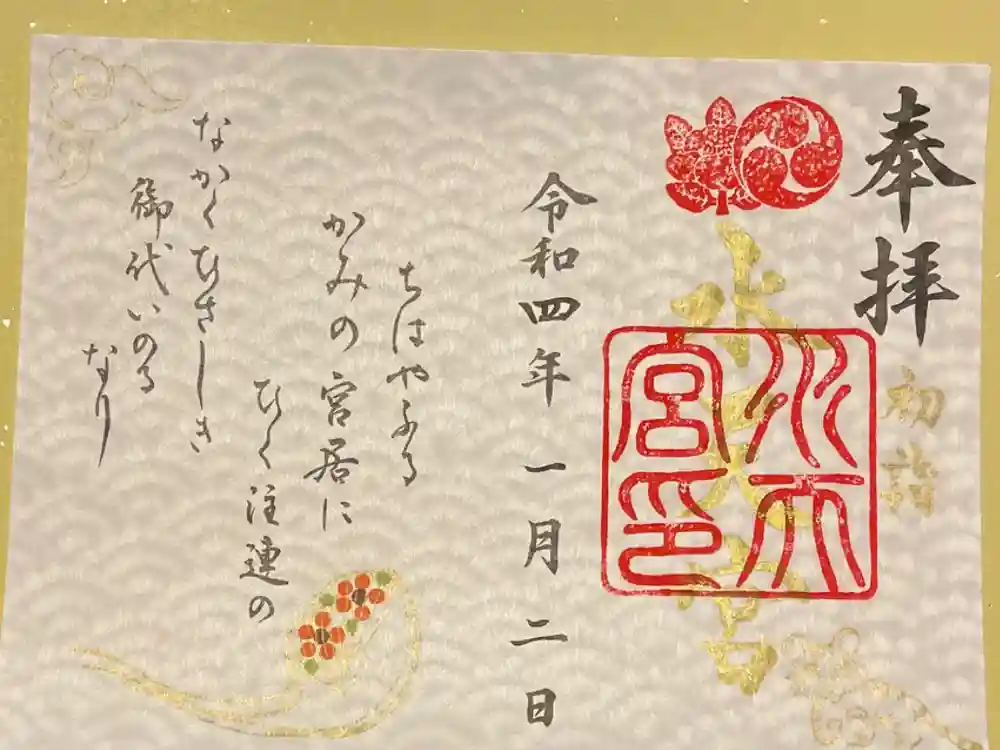 奉拝
初詣
水天宮
水天宮印
令和四年一月二日
ちはやふる
かみの宮居に
ひく注連の
なかくひさしき
御代いのる
なり